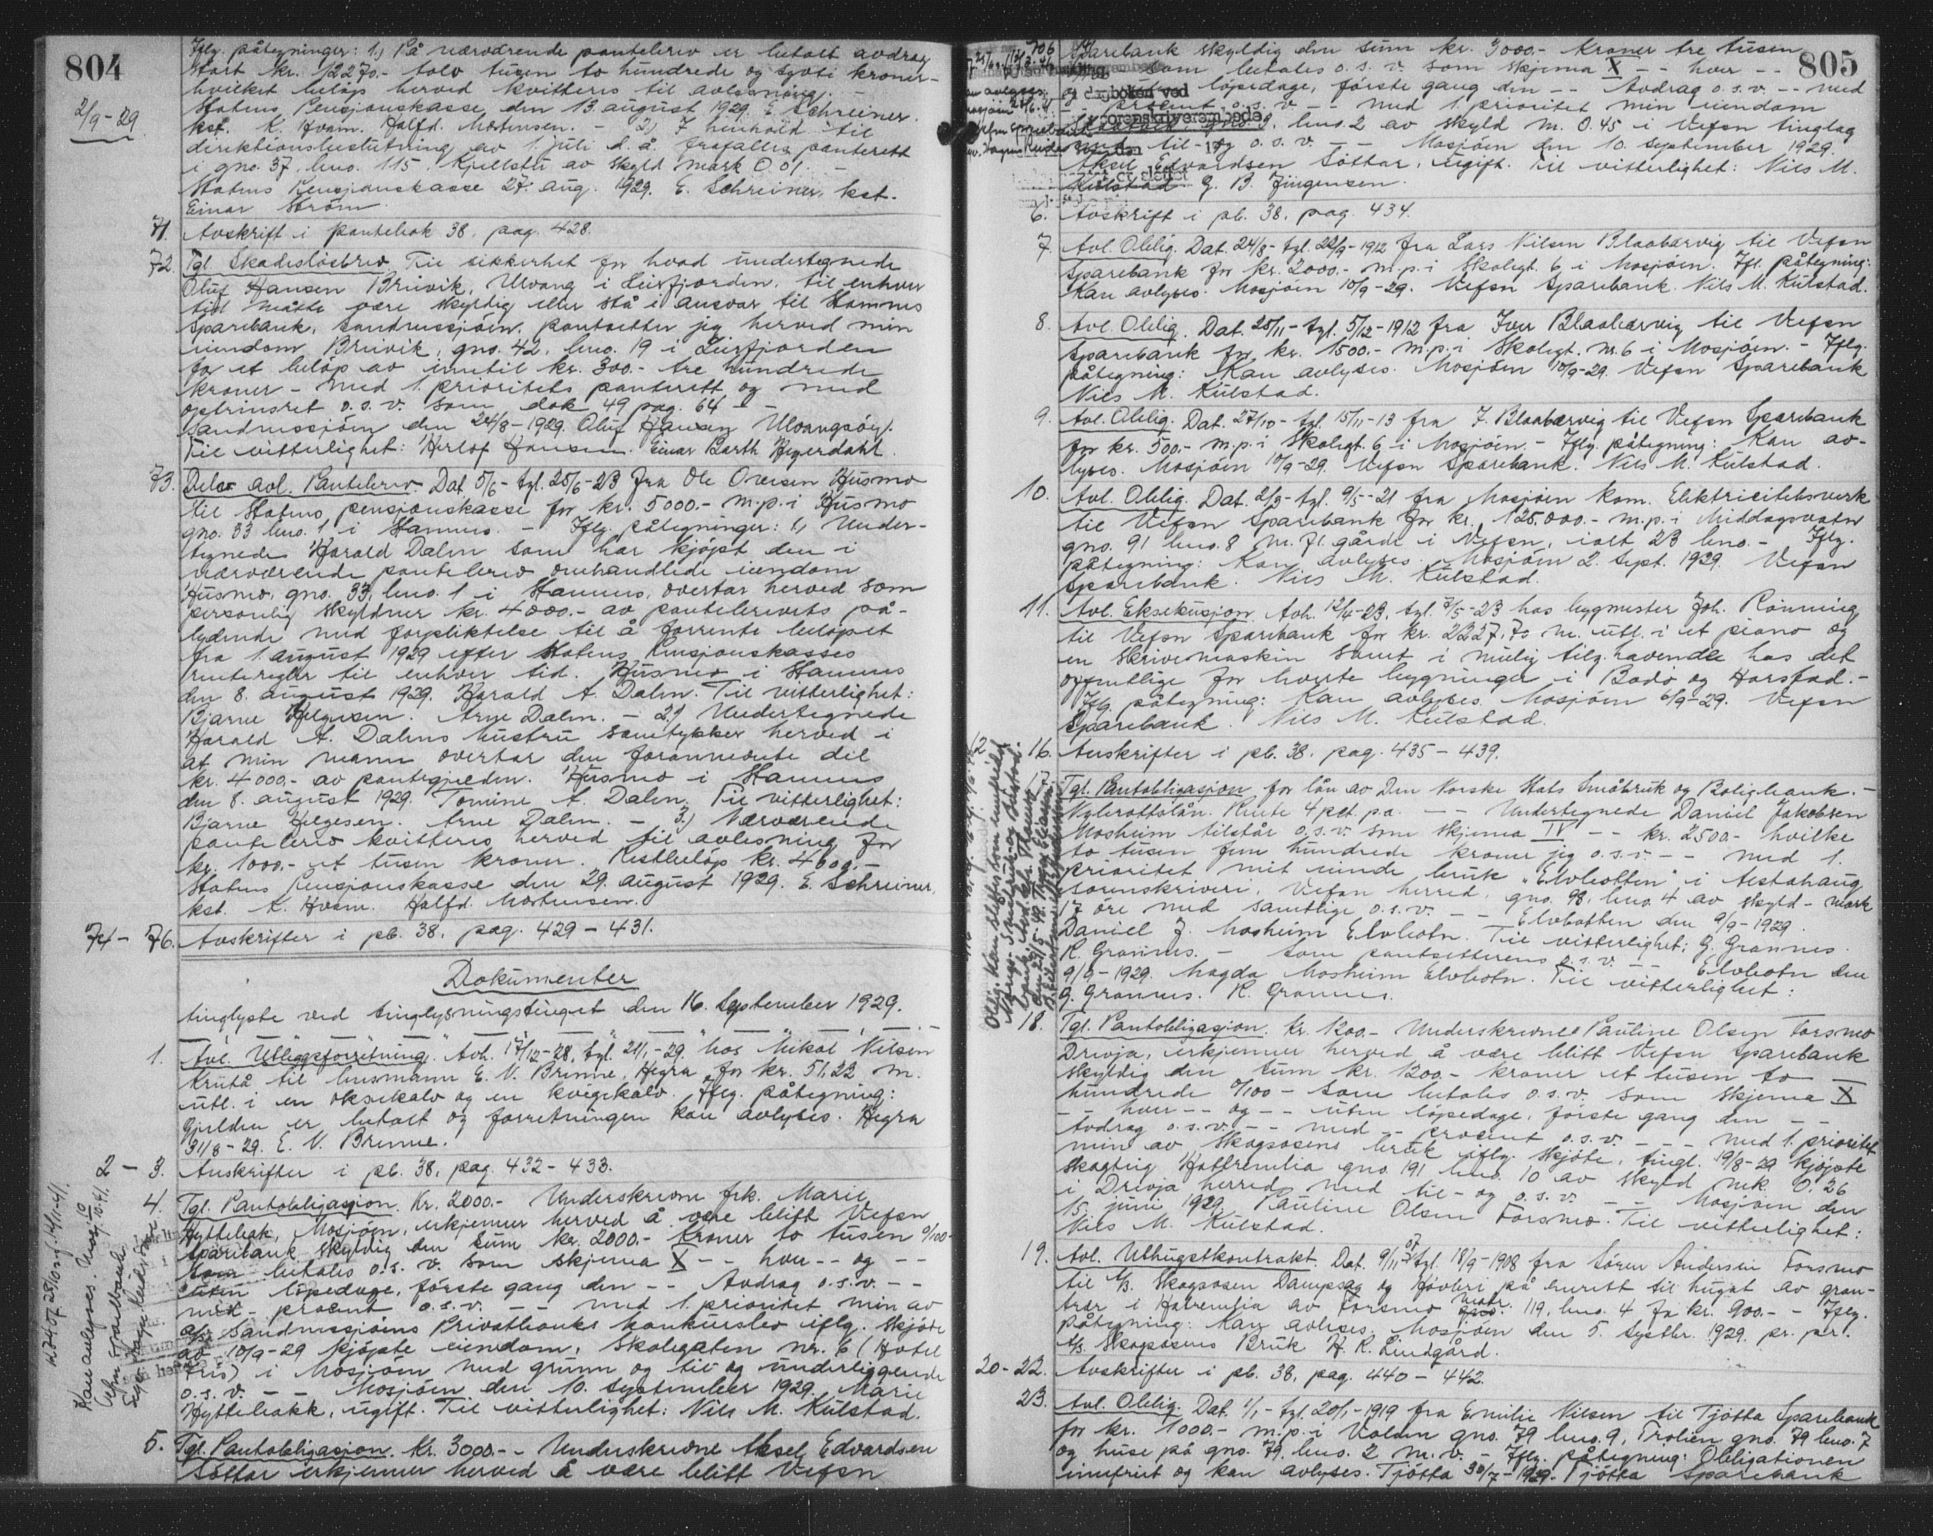 804
2/9-29
Iflg. påtegninger: 1.) På nærværende pantebrev er betalt avdrag
stort kr. 12270.- tolv tusen to hundrede og sytti kroner -
hvilket beløp herved kvitteres til avlesning. -
Statens Pensjonskasse, den 13 august 1929. E. Schreiner.
kst. K. Hvam. Halfd. Mortensen. - 2.) I henhold til
direktionsbeslutning av 1. juli d.å. frafalles panterett
i gno. 37, bno. 115. av skyld mark 0.01. -
Statens Pensjonskasse 27. aug. 1929. E. Schreiner, kst.
Einar Strøm.
71. Avskrift i pantebok 38. pag. 428.
72. Tgl. Skadesløsbrev. Til sikkerhet for hvad undertegnede
Oluf Hansen Breivik, Ulvang i Leirfjorden, til enhver
tid måtte være skyldig eller stå i ansvar til Stamnes
Sparebank, Sandnessjøen, pantsetter jeg herved min
eiendom Breivik, gno. 42, bno. 19 i Leirfjorden
for et beløp av inntil kr. 300.- tre hundrede
kroner - med 1. prioritets panterett og med
optrinsret o.s.v. som dok 49 pag. 64 - -
Sandnessjøen den 24/8-1929. Oluf Hansen Ulvangsøy.
Til vitterlighet: Herlof Hansen. Einar Barth Hegerdahl.
73. Delv. avl. Pantebrev. Dat. 5/6- tgl. 25/6-23 fra Ole Oversen Husmo
til Statens pensjonskasse for kr. 5000.- m.p. i Husmo
gno. 33 bno. 1 i Stamnes. - Iflg. påtegninger: 1.) Under-
tegnede Harald Dalen som har kjøpt den i
nærværende pantebrev omhandlede eiendom
Husmo, gno. 33, bno. 1 i Stamnes, overtar herved som
personlig skyldner kr. 4000.- av pantebrevets på-
lydende med forpliktelse til å forrente beløpet
fra 1. august 1929 efter Statens Pensjonskasses
renteregler til enhver tid. Husmo i Stamnes
den 8. august 1929. Harald A. Dalen. Til vitterlighet:
Bjarne Helgesen. Arne Dalen. - 2.) Undertegnede
Harald A. Dalens hustru samtykker herved i
at min mann overtar den forannevnte del
kr. 4000.- av pantegjelden. Husmo i Stamnes
den 8. august 1929. Tomine A. Dalen. Til vitterlighet:
Bjarne Helgesen. Arne Dalen. - 3.) Nærværende
pantebrev kvitteres herved til avlesning for
kr. 1000.- et tusen kroner. Restbeløp kr. 4000.-
Statens Pensjonskasse den 29. august 1929. E. Schreiner,
kst. K. Hvam. Halfd. Mortensen.
74 - 76. Avskrifter i pb. 38. pag. 429 - 431.
Dokumenter
tinglyste ved tinglysningstinget den 16. September 1929.
1. Avl. Utleggsforretning. Avh. 17/12-28, tgl. 21/1-29 hos Mikal Nilsen
Krutå til husmann E. V. Brenne, Hegra for kr. 51,22 m.
utl. i en oksekalv og en kvigekalv. Iflg. påtegning:
Gjelden er betalt og forretningen kan avlyses. Hegra
31/8-29. E. V. Brenne.
2 - 3. Avskrifter i pb. 38, pag. 432-433.
4. Tgl. Pantobligasjon. Kr. 2000.- Underskrevne frk. Marie
Hyttebak, Mosjøen, erkjenner herved å være blitt Vefsn
Sparebank skyldig den sum kr. 2000.- kroner to tusen 0/100-
som betales o.s.v. som skjema X - - hver - - og - -
uten løpedage, første gang den - - Avdrag o.s.v. - -
med - procent o.s.v. - - med 1. prioritet min av
A/S Sandnessjøens Privatbanks konkursbo iflg. skjøte
av 10/9-29 kjøpte eiendom, Skolegaten nr. 6 (Hotel
Fris) i Mosjøen med grunn og til og underliggende
o.s.v. - - Mosjøen den 10. september 1929. Marie
Hyttebakk, ugift. Til vitterlighet: Nils M. Kulstad.
5. Tgl. Pantobligasjon. Kr. 3000.- - Underskrevne Aksel Edvardsen
Søttar erkjenner herved å være blitt Vefsn
Kan avlyses.
805
Sparebank skyldig den sum kr. 3000.- kroner tre tusen
- som betales o.s.v. som skjema X - - hver - -
løpedage, første gang den - - Avdrag o.s.v. - - med
- procent o.s.v. - - med 1. prioritet min eiendom
bno. 2 av skyld m. 0.45 i Vefsn tinglag
med til- og o.s.v. - - Mosjøen den 10. september 1929.
Aksel Edvardsen Søttar, ugift. Til vitterlighet: Nils M.
Kulstad. G. B. Jürgensen.
dagboken ved
sorenskriverembede
slettet
6. Avskrift i pb. 38, pag. 434.
7. Avl. Oblig. Dat. 24/8- tgl. 22/9-1912 fra Lars Nilsen Blaabærvig til Vefsn
Sparebank for kr. 2000.- m.p. i Skolegt. 6 i Mosjøen. Ifl. påtegning:
Kan avlyses. Mosjøen 10/9-29. Vefsn Sparebank. Nils M. Kulstad.
8. Avl. Oblig. Dat. 25/11- tgl. 5/12-1912 fra Iver Blaabærvig til Vefsn
Sparebank for kr. 1500.- m.p. i Skolegt. nr. 6 i Mosjøen. - Iflg.
påtegning: Kan avlyses. Mosjøen 10/9-29. Vefsn Sparebank
Nils M. Kulstad.
9. Avl. Oblig. Dat. 27/10- tgl. 15/11-13 fra I. Blaabærvig til Vefsn Sparebank
for kr. 500.- m.p. i Skolegt. 6 i Mosjøen - Iflg. påtegning: Kan av-
lyses. Mosjøen 10/9-29. Vefsn Sparebank. Nils M. Kulstad.
10. Avl. Oblig. Dat. 2/3- tgl. 9/5-21 fra Mosjøen kom. Elektricitetsverk
til Vefsn Sparebank for kr. 125.000.- m.p. i Middagsvatn
gno. 91 bno. 8 m.fl. gårde i Vefsn, ialt 23 bno. - Iflg.
påtegning: Kan avlyses. Mosjøen 2. sept. 1929. Vefsn
Sparebank. Nils M. Kulstad.
11. Avl. Eksekusjon. Avh. 12/4-23, tgl. 7/5-23 hos bygmester Joh. Rønning
til Vefsn Sparebank for kr. 2227.70 m. utl. i et piano og
en skrivemaskin samt i mulig tilg. havende hos det
offentlige for leverte bygninger i Bodø og Harstad. -
Iflg. påtegning: Kan avlyses. Mosjøen 6/9-29. Vefsn
Sparebank. Nils M. Kulstad.
12 - 16. Avskrifter i pb. 38. pag. 435 - 439.
17. Tgl. Pantobligasjon for lån av Den Norske Stats Småbruk og Boligbank. -
Nybrottslån. Rente 4 pct. p.a. - - Undertegnede Daniel Jakobsen
Mosheim tilstår o.s.v. som skjema IV - - kr. 2500.- hvilke
to tusen fem hundrede kroner jeg o.s.v. - - med 1.
prioritet mit eiende bruk "Elvbotten" i Alstahaug
sorenskriveri, Vefsn herred, gno. 98, bno. 4 av skyld - mark
17 øre med samtlige o.s.v. - - Elvbotten den 9/9-1929.
Daniel J. Mosheim Elvbotn. Til vitterlighet: G. Grannes.
R. Grannes. - Som pantsetterens o.s.v. - - Elvbotn den
9/9-1929. Magda Mosheim Elvbotn. Til vitterlighet:
G. Grannes. R. Grannes.
18. Tgl. Pantobligasjon. Kr. 1200.- Underskrevne Pauline Olsen Forsmo
Drevja, erkjenner herved å være blitt Vefsn Sparebank
skyldig den sum kr. 1200.- kroner et tusen to
hundrede 0/100 - som betales o.s.v. som skjema X
- - hver - - og - - uten løpedage, første gang den - -
Avdrag o.s.v. - - med - - procent o.s.v. - - - med 1. prioritet
min av Skogsosens bruk iflg. skjøte, tingl. 19/8-29 kjøpte
skogteig gno. 191 bno. 10 av skyld mk. 0.26
i Drevja herred med til- og o.s.v. - - Mosjøen den
15. juni 1929. Pauline Olsen Forsmo. Til vitterlighet:
Nils M. Kulstad.
19. Avl. Uthugstkontrakt. Dat. 9/11 07 tgl. 18/9-1908 fra Søren Andersen Forsmo
til A/S Skogsosen Dampsag og Høvleri på enerett til hugst av gran-
trær i av Forsmo matr. 119, bno. 4 for kr. 900.- - Iflg.
påtegning: Kan avlyses, Mosjøen den 5. septbr. 1929. pr. pr.
A/S Skogsosens Bruk H. K. Lindgård.
20 - 22. Avskrifter i pb. 38, pag. 440 - 442.
23. Avl. Oblig. Dat. 1/1- tgl. 20/1-1919 fra Emilie Nilsen til Tjøtta Sparebank
for kr. 1000.- m.p. i Volden gno. 79 bno. 9, Trolien gno. 79 bno. 7
og huse på gno. 79, bno. 2 m.v. - Iflg. påtegning: Obligationen
innfriet og kan avlyses. Tjøtta 30/7-1929. Tjøtta Sparebank